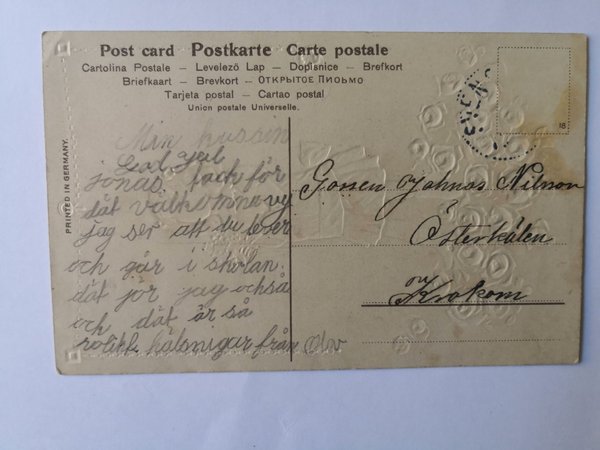 Post card Postkarte Carte postale
Cartolina Postale – Levelező Lap – Dopisnice – Brefkort
Briefkaart – Brevkort – ОТКРЫТОЕ ПИСЬМО
Tarjeta postal – Cartao postal
Union postale Universelle.
PRINTED IN GERMANY.
18
Min
God jul
Jonas tack för
dåt
jag ser att du leser
och går i skolan.
dåt jör jag också
och dåt är så
hälsnigar från
Gossen
Österkälen
Krokom